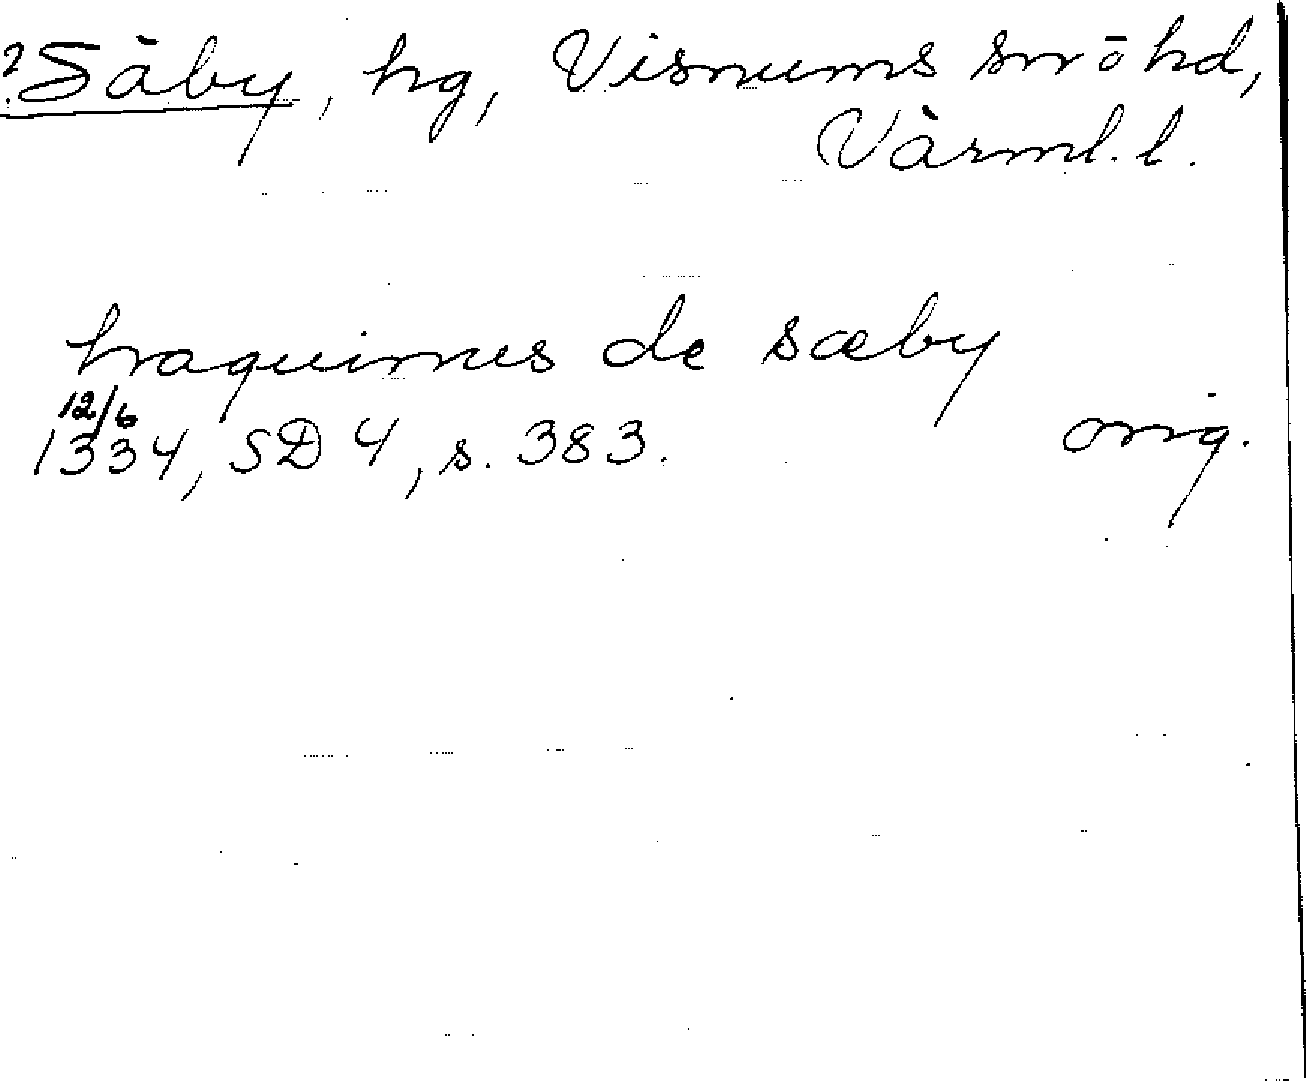 ? Säby, hg, Visnums sn o hd,
Värml. l.
haquinus de sæby
12/6
1334, SD 4, s. 383. orig.